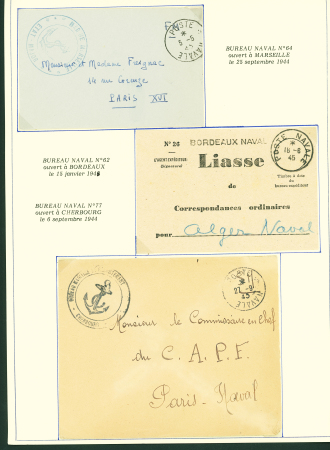 POSTE NAVALE
BUREAU NAVAL N°64
ouvert à MARSEILLE
le 25 septembre 1944
Monsieur et Madame
14
PARIS XVI
BUREAU NAVAL N°62
ouvert à BORDEAUX
le 15 janvier 1945
BUREAU NAVAL N°77
ouvert à CHERBOURG
le 6 septembre 1944
N° 26 BORDEAUX NAVAL
POSTE NAVALE
18-6
45
Liasse
de
Correspondances ordinaires
pour Alger Naval
POSTE NAVALE
CHERBOURG
Monsieur le Commissaire en Chef
du C.A.P.F.
Paris-Naval